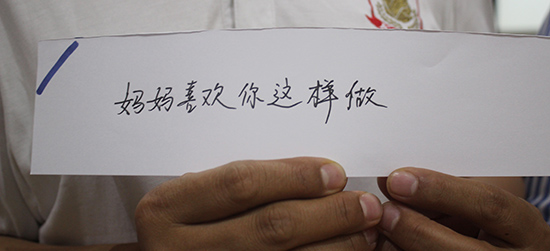 妈妈喜欢你这样做